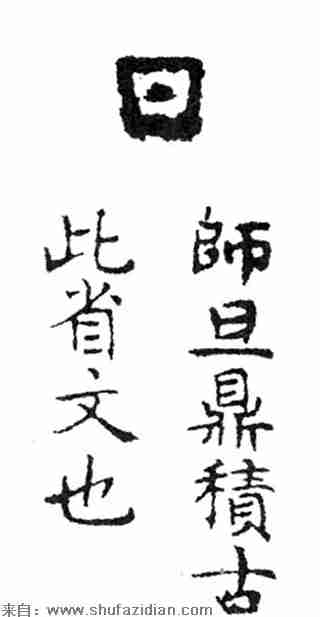 師旦鼎積古
此省文也
来自：www.shufazidian.com